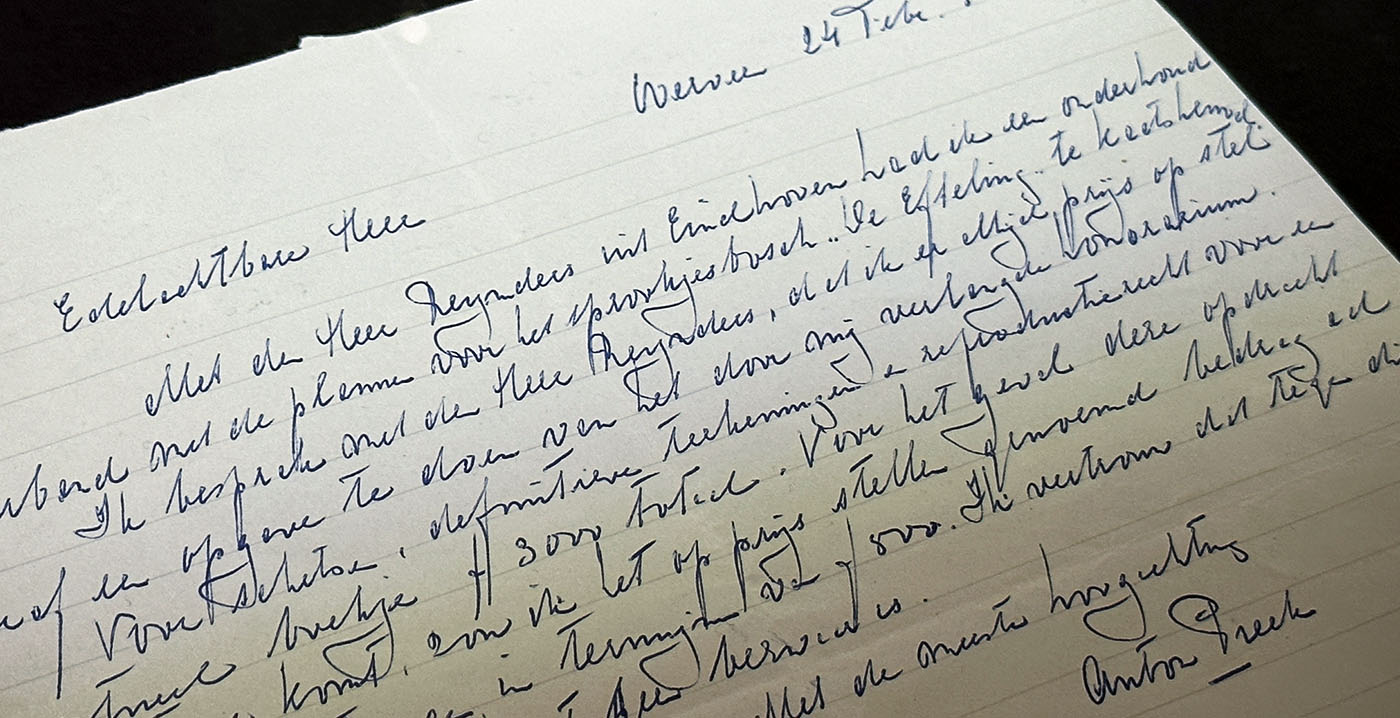 24 Febr.
Edelachtbare Heer
Met den Heer Reynders uit Eindhoven had ik een onderhoud
verband met de plannen voor het sprookjesbosch "De Efteling" te Kaatsheuvel.
Ik besprak met den Heer Reynders, dat ik er altijd prijs op stel
een opgave te doen van het door mij verlangde honorarium.
Voor schetsen, definitieve teekeningen en reproductierecht voor een
boekje f 3000 totaal. Voor het geval deze opdracht
komt, zou ik het op prijs stellen genoemd bedrag
in termijnen van f 500. Ik vertrouw dat
Met de meeste hoogachting
Anton Pieck